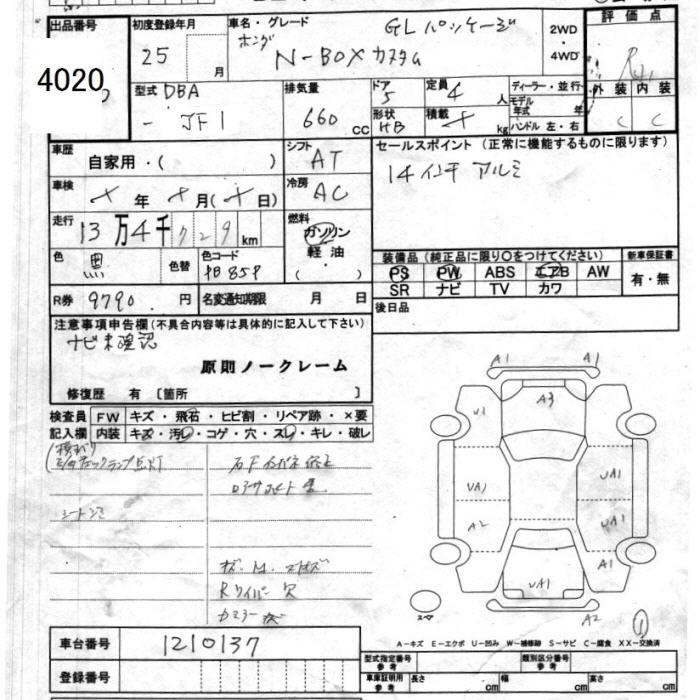 出品番号
4020
初度登録年月
25 月
車名・グレード
ホンダ
N-BOXカスタム
GLパッケージ
2WD
・
4WD
評価点
外装 内装
C C
型式 DBA
- JF1
排気量
660 cc
ドア
5
形状
HB
定員
4 人
積載
kg
ディーラー・並行
モデル年式 年
ハンドル 左・右
車歴
自家用・( )
シフト
AT
セールスポイント (正常に機能するものに限ります)
14インチ アルミ
車検
年 月( 日)
冷房
AC
走行
13万4千729km
燃料
ガソリン
軽油・
( )
色
黒
色替
色コード
PB85P
装備品 (純正品に限り○をつけてください)
新車保証書
PS PW ABS エアB AW
SR ナビ TV カワ
有・無
R券 9790. 円
名変通知期限 月 日
後日品
注意事項申告欄(不具合内容等は具体的に記入して下さい)
ナビ未確認
原則ノークレーム
修復歴 有 [箇所 ]
検査員
記入欄
FW キズ・飛石・ヒビ割・リペア跡・×要
内装 キズ・汚レ・コゲ・穴・スレ・キレ・破レ
シートシミ
キズ. M. エクボ
Rワイパー欠
A1 A1
A3
U1
UA1
UA1
A2
UA1
A1
UA1
A2
スペア
1
A-キズ E-エクボ U-凹み W-補修跡 S-サビ C-腐食 XX-交換済
車台番号
1210137
登録番号
型式指定番号
参考
類別区分番号
参考
車庫証明用
参考
長さ cm
幅 cm
高さ cm